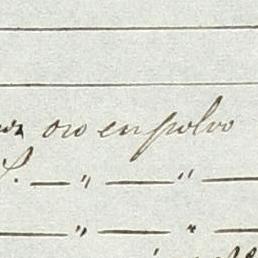 oro en polvo
— " — " —
— " — " —